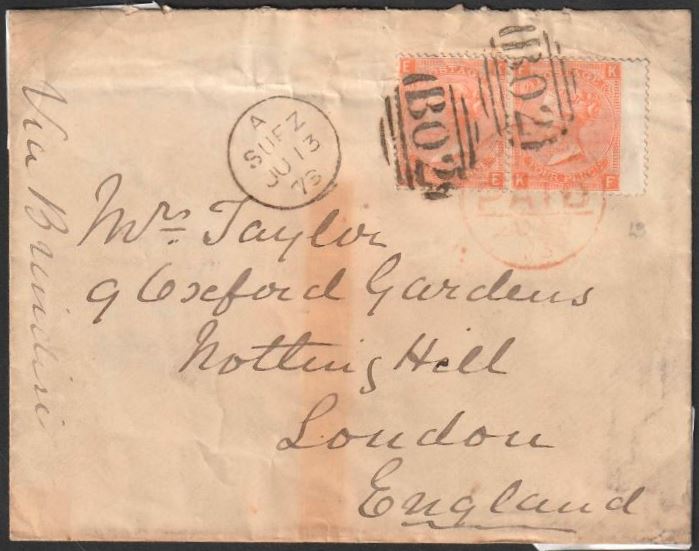 Via Brindisi
A
SUEZ
JU 13
73
B02
B02
E
K
POSTAGE
FOUR PENCE
E
K
F
PAID
Mrs. Taylor
9 Oxford Gardens
Notting Hill
London
England